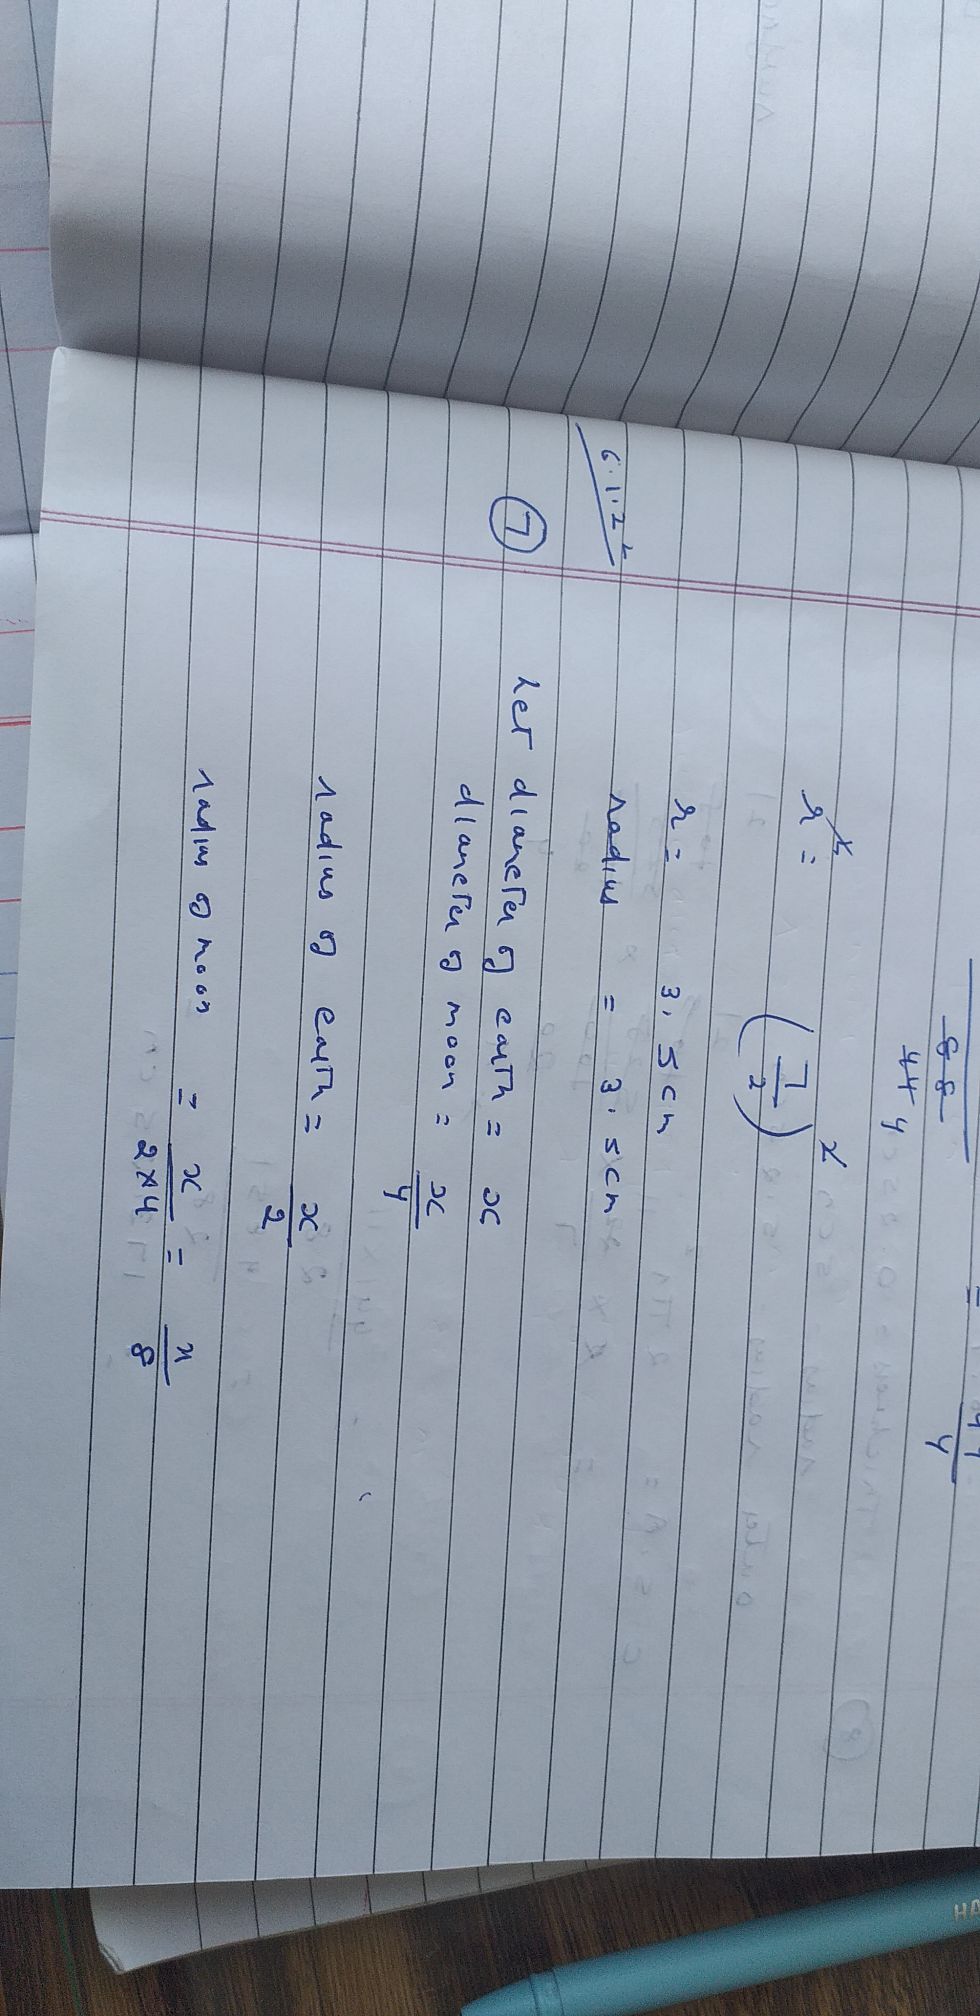 88
44 4
= 
4
r² = (7/2)²
r = 3.5cm
radius = 3.5cm
6.1.2²
7
Let diameter of earth = x
diameter of moon = x/4
radius of earth = x/2
radius of moon = x/2×4 = x/8
HA